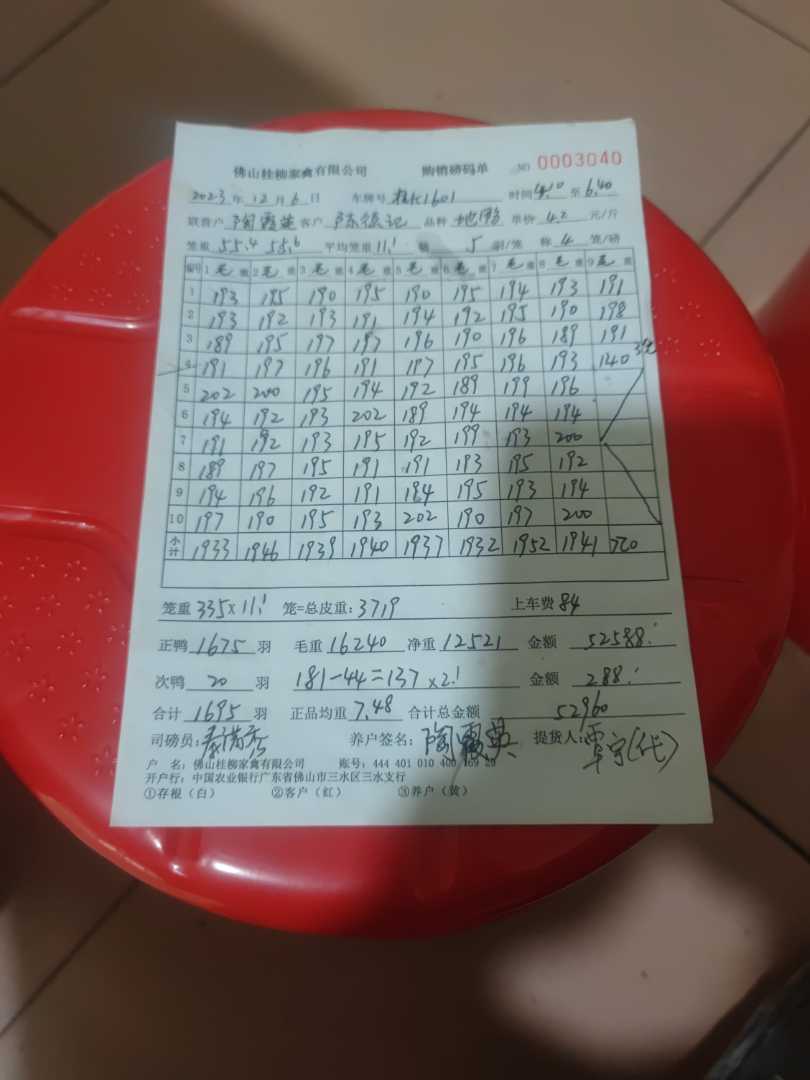 佛山桂柳家禽有限公司 购销磅码单 NO 0003040
2023年12月6日 车牌号 1601 时间4:10至6:40
联营户 陶霞英 客户 陈强记 品种 地鸭 单价 4.2 元/斤
笼重 55.4 55.6 平均笼重 11.1 装 5 羽/笼 称 4 笼/磅
编号 1毛重 2毛重 3毛重 4毛重 5毛重 6毛重 7毛重 8毛重 9毛重
1 193 195 190 195 190 195 194 193 191
2 193 192 193 191 194 192 195 190 198
3 189 195 197 197 196 190 196 189 191
4 191 197 196 191 197 195 196 193 140 3笼
5 202 200 195 194 192 189 199 196
6 194 192 193 202 189 194 194 194
7 191 192 193 195 192 199 193 200
8 189 197 195 191 191 193 195 192
9 194 196 192 191 194 195 193 194
10 197 190 195 193 202 190 197 200
小计 1933 1946 1939 1940 1937 1932 1952 1941 720
笼重 335×11.1 笼=总皮重: 3719 上车费 84
正鸭 1675 羽 毛重 16240 净重 12521 金额 52588.
次鸭 20 羽 181-44=137×2.1 金额 288.
合计 1695 羽 正品均重 7.48 合计总金额 52960
司磅员: 养户签名: 陶霞英 提货人: 覃宇(代)
户 名: 佛山桂柳家禽有限公司 账号: 444 401 010 400 169 29
开户行: 中国农业银行广东省佛山市三水区三水支行
①存根（白） ②客户（红） ③养户（黄）